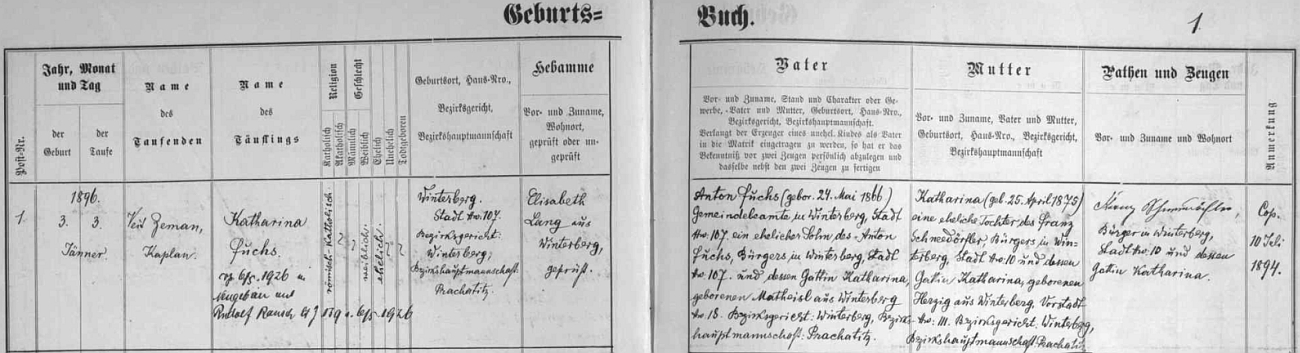 Geburts=
Buch.
1.
Post-Nr.
Jahr, Monat
und Tag
der
Geburt
der
Taufe
Name
des
Taufenden
Name
des
Täuflings
Religion
Katholisch
Akatholisch
Geschlecht
Männlich
Weiblich
Ehelich
Unehelich
Todtgeboren
Geburtsort, Haus-Nro.,
Bezirksgericht,
Bezirkshauptmannschaft
Hebamme
Vor- und Zuname,
Wohnort,
geprüft oder un-
geprüft
Vater
Vor- und Zuname, Stand und Charakter oder Ge-
werbe, Vater und Mutter, Geburtsort, Haus-Nro.,
Bezirksgericht, Bezirkshauptmannschaft.
Verlangt der Erzeuger eines unehel. Kindes als Vater
in die Matrik eingetragen zu werden, so hat er das
Bekenntniß vor zwei Zeugen persönlich abzulegen und
dasselbe nebst den zwei Zeugen zu fertigen
Mutter
Vor- und Zuname, Vater und Mutter,
Geburtsort, Haus-Nro., Bezirksgericht,
Bezirkshauptmannschaft
Pathen und Zeugen
Vor- und Zuname und Wohnort
Anmerkung
1
1896.
3. 3.
Jänner.
Veit Zeman,
Kaplan.
Katharina
Fuchs.
1926 in
und
Rudolf
1926
römisch-katholisch
weiblich
ehelich
Winterberg.
Stadt No. 107.
Bezirksgericht:
Winterberg,
Bezirkshauptmannschaft:
Prachatitz.
Elisabeth
Lang aus
Winterberg,
geprüft.
Anton Fuchs (gebor. 24. Mai 1866)
Gemeindebeamte in Winterberg, Stadt
No. 107. ein ehelicher Sohn des Anton
Fuchs, Bürgers in Winterberg, Stadt
No. 107. und dessen Gattin Katharina,
geborenen Matheisl aus Winterberg
No 18. Bezirksgericht: Winterberg, Bezirks-
hauptmannschaft: Prachatitz.
Katharina (geb. 25. April 1875)
eine eheliche Tochter des Franz
Schwedörfler, Bürgers in Win-
terberg, Stadt No. 10 und dessen
Gattin Katharina, geborenen
Herzig aus Winterberg, Vorstadt
No: III. Bezirksgericht: Winterberg,
Bezirkshauptmannschaft: Prachatitz
Bürger in Winterberg,
Stadt No. 10 und dessen
Gattin Katharina.
Cop.
10 Juli
1894.